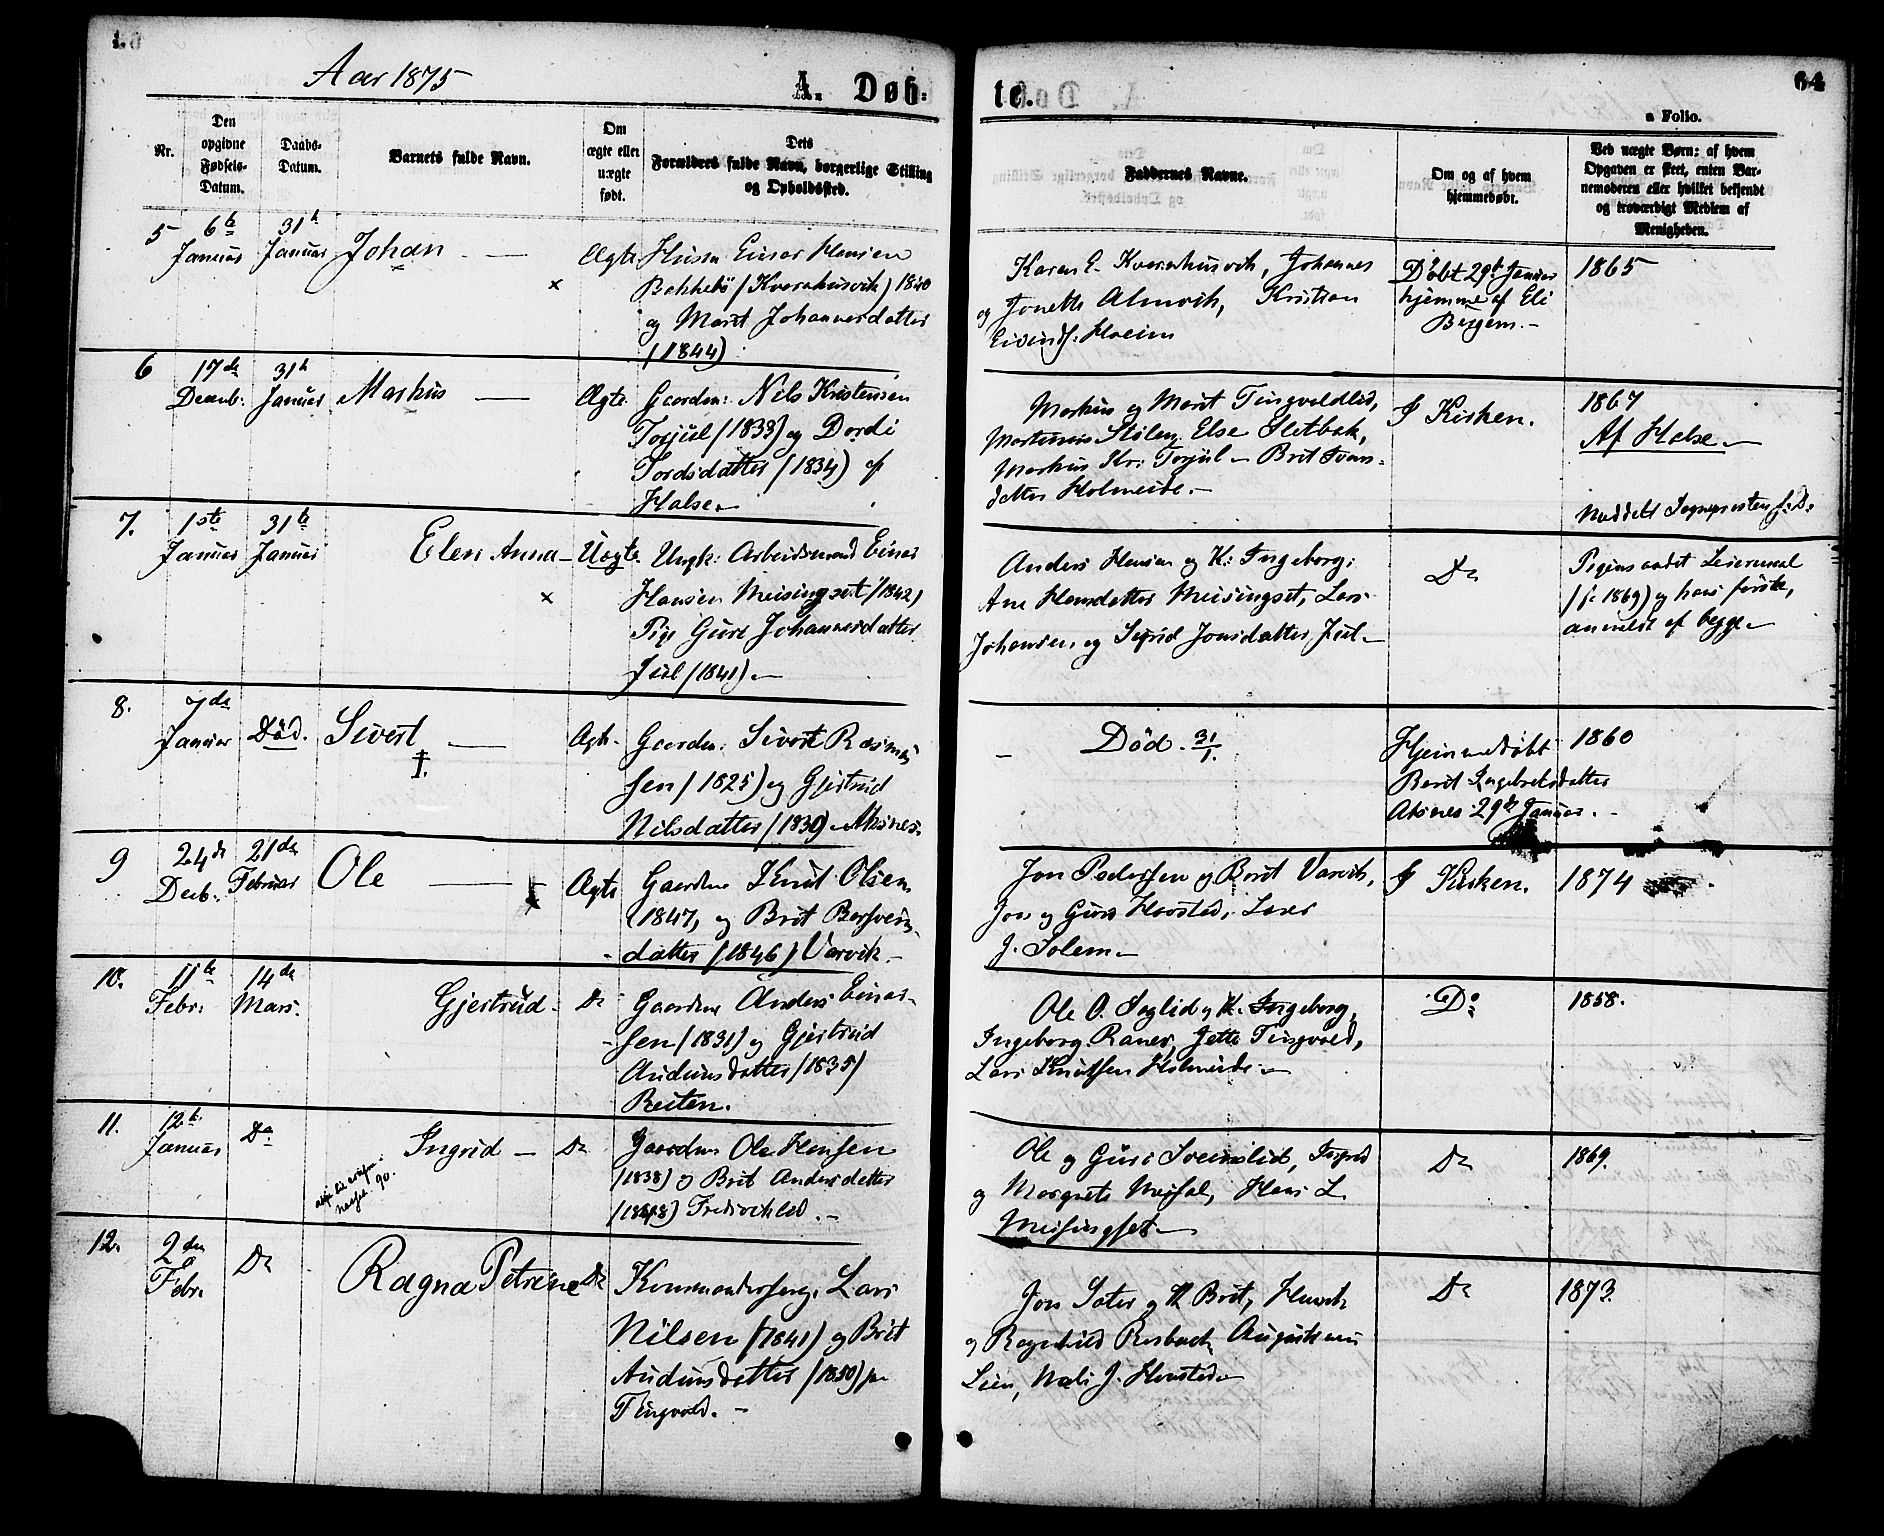 Aar 1875
A. Døbte.
64
a Folio.
Nr.
Den opgivne Fødsels-Datum.
Daabs-Datum.
Barnets fulde Navn.
Om ægte eller uægte født.
Dets Forældres fulde Navn, borgerlige Stilling og Opholdssted.
Faddernes Navne.
Om og af hvem hjemmedøbt.
Ved uægte Børn: af hvem Opgaven er skeet, enten Barnemoderen eller hvilket bekjendt og troværdigt Medlem af Menigheden.
5
6te Januar
31te Januar
Johan
Ægte
Husm. Einar Hansen
Bakkebø (Kvernhusvik) 1840
og Marit Johannesdatter
(1844)
Karen E. Kvernhusvik, Johannes
og Jonette Almvik, Kristian
Eivinds. Hoem
Døbt 29de Januar
hjemme af Eli
Bergem.-
1865
6
17de Decmb:
31te Januar
Markus
Ægte.
Gaardm: Nils Kristensen
Torjul (1833) og Dordi
Tordsdatter (1834) af
Halse.
Markus og Marit Tingvoldlid,
Martinus Stølen, Else Sletbak,
Markus Kr: Torjul - Brit Ivers-
datter Holmeide.-
I Kirken.
1867
Af Halse.-
Meddelt Sognepresten s. D.
7.
1ste Januar
31te Januar
Elen Anna
Uægte.
Ungk: Arbeidsmand Einar
Hansen Meisingset (1842)
Pige Guri Johannesdatter
Jul (1841).-
Anders Hansen og K: Ingeborg:
Ane Hansdatter Meisingset, Lars
Johansen, og Sigrid Jonsdatter Jul.-
Do
Pigens andet Leiermaal
(f. 1869) og hans første,
anmeldt af begge.-
8.
7de Januar
Død.
Sivert
†.
Ægte.
Gaardm: Sivert Rasmus-
sen (1825) og Gjertrud
Nilsdatter (1830) Aksnes.
Død. 31/1.
Hjemmedøbt
Berit Ingebretsdatter
Aksnes 29de Januar.
1860
9
24de Decb.
21de Februar
Ole
Ægte
Gaardm Knut Olsen
(1847, og Brit Bersvens-
datter (1846) Varvik.-
Jon Pedersen og Berit Varvik,
Jon og Guri Havsted, Lars
J. Solem.-
I Kirken.
1874
10.
11te Febr:
14de Mars.
Gjertrud
Do
Gaardm Anders Einar-
sen (1831) og Gjertrud
Audunsdatter (1835)
Reiten.
Ole O. Soglid og K. Ingeborg,
Ingeborg Ranes, Jette Tingvold,
Lars Knutsen Holmeide.-
Do
1858.
11.
12te Januar
Do
Ingrid
Do
Gaardm Ole Hansen
(1838) og Brit Andersdatter
(1848) Fredsviklid.-
Ole og Guri Sveinslid, Ingrid
og Margrete Meisal, Hans L.
Meisingset.-
Do
1869.
12.
2den Febr.
Do
Ragna Petrine
Do
Kommandersserg. Lars
Nilsen (1841) og Brit
Audunsdatter (1850) paa
Tingvold.-
Jon Sæter og K Brit, Henrik
og Ragnhild Rosbach, Augustinus
Lien, Mali J. Havsted.-
Do
1873.